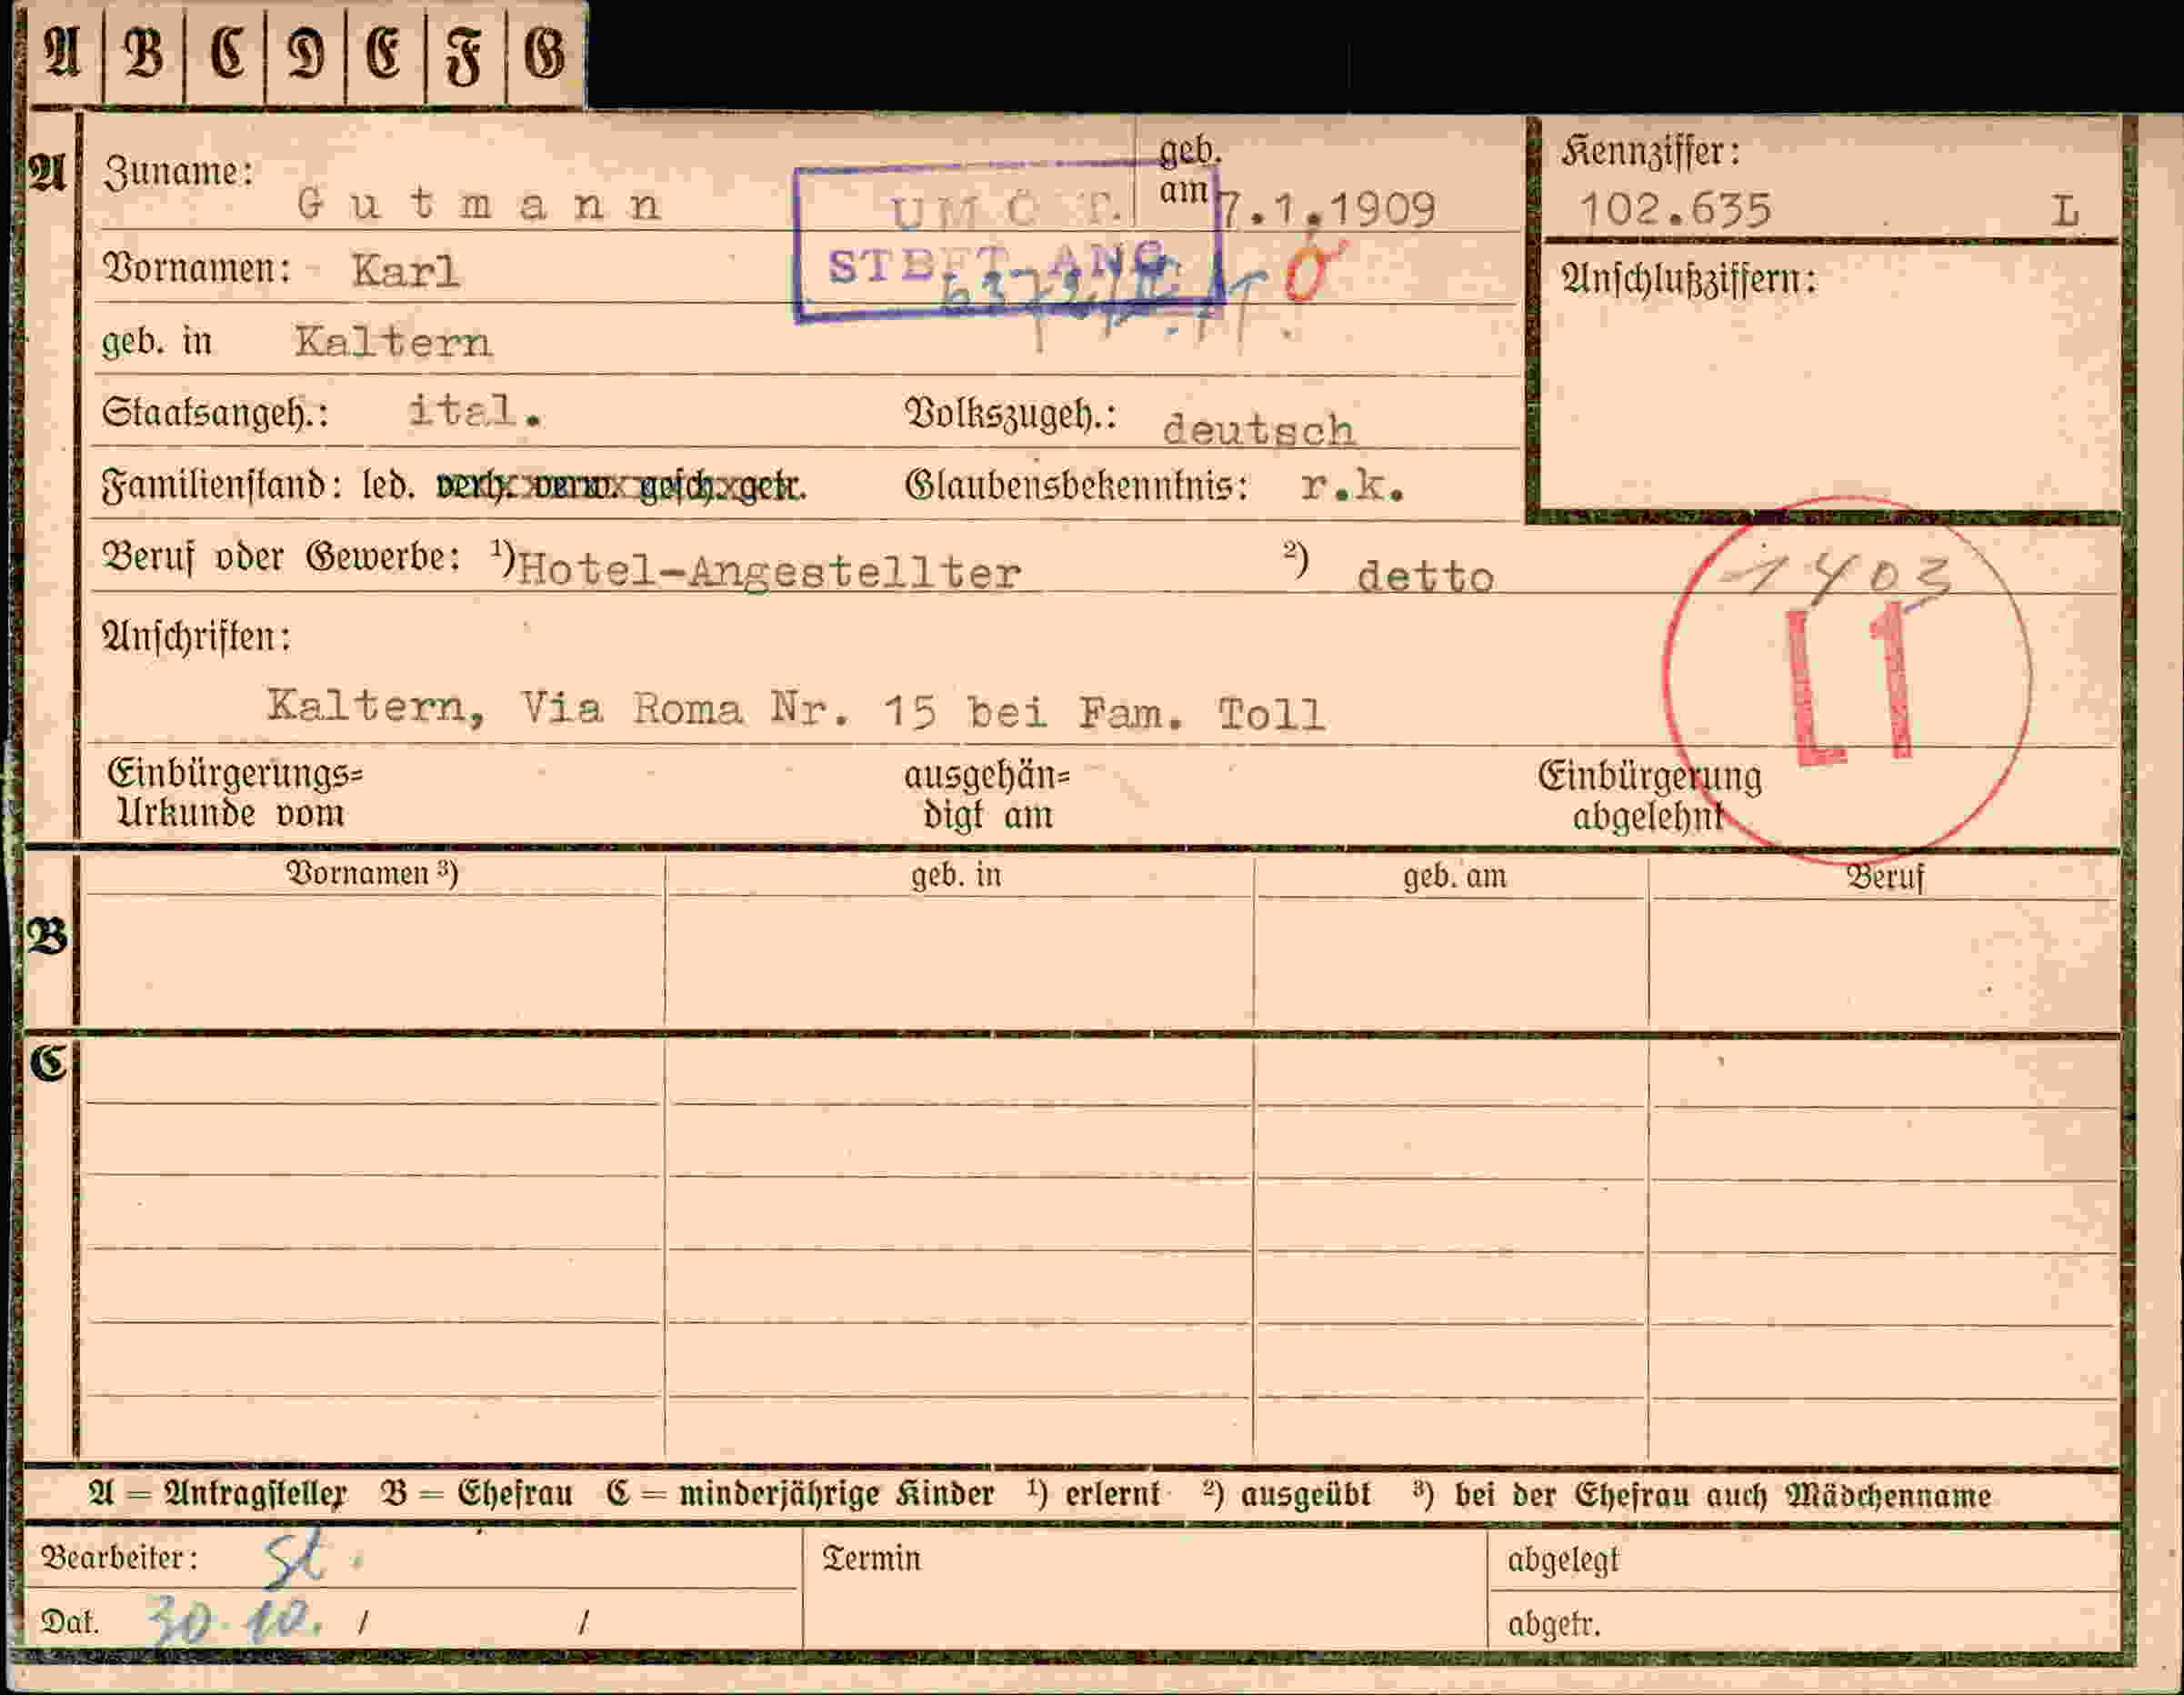 A B C D E F G
A Zuname: Gutmann geb. am 7.1.1909
Kennziffer: 102.635 L
Vornamen: Karl
Anschlußziffern:
geb. in Kaltern
Staatsangeh.: ital. Volkszugeh.: deutsch
Familienstand: led. verh. verw. gesch. getr. Glaubensbekenntnis: r.k.
Beruf oder Gewerbe: ¹) Hotel-Angestellter ²) detto
1403
L1
Anschriften:
Kaltern, Via Roma Nr. 15 bei Fam. Toll
Einbürgerungs= ausgehän= Einbürgerung
Urkunde vom digt am abgelehnt
Vornamen ³) geb. in geb. am Beruf
B
C
A = Antragsteller B = Ehefrau C = minderjährige Kinder ¹) erlernt ²) ausgeübt ³) bei der Ehefrau auch Mädchenname
Bearbeiter: St. Termin abgelegt
Dat. 30.10. / / abgetr.